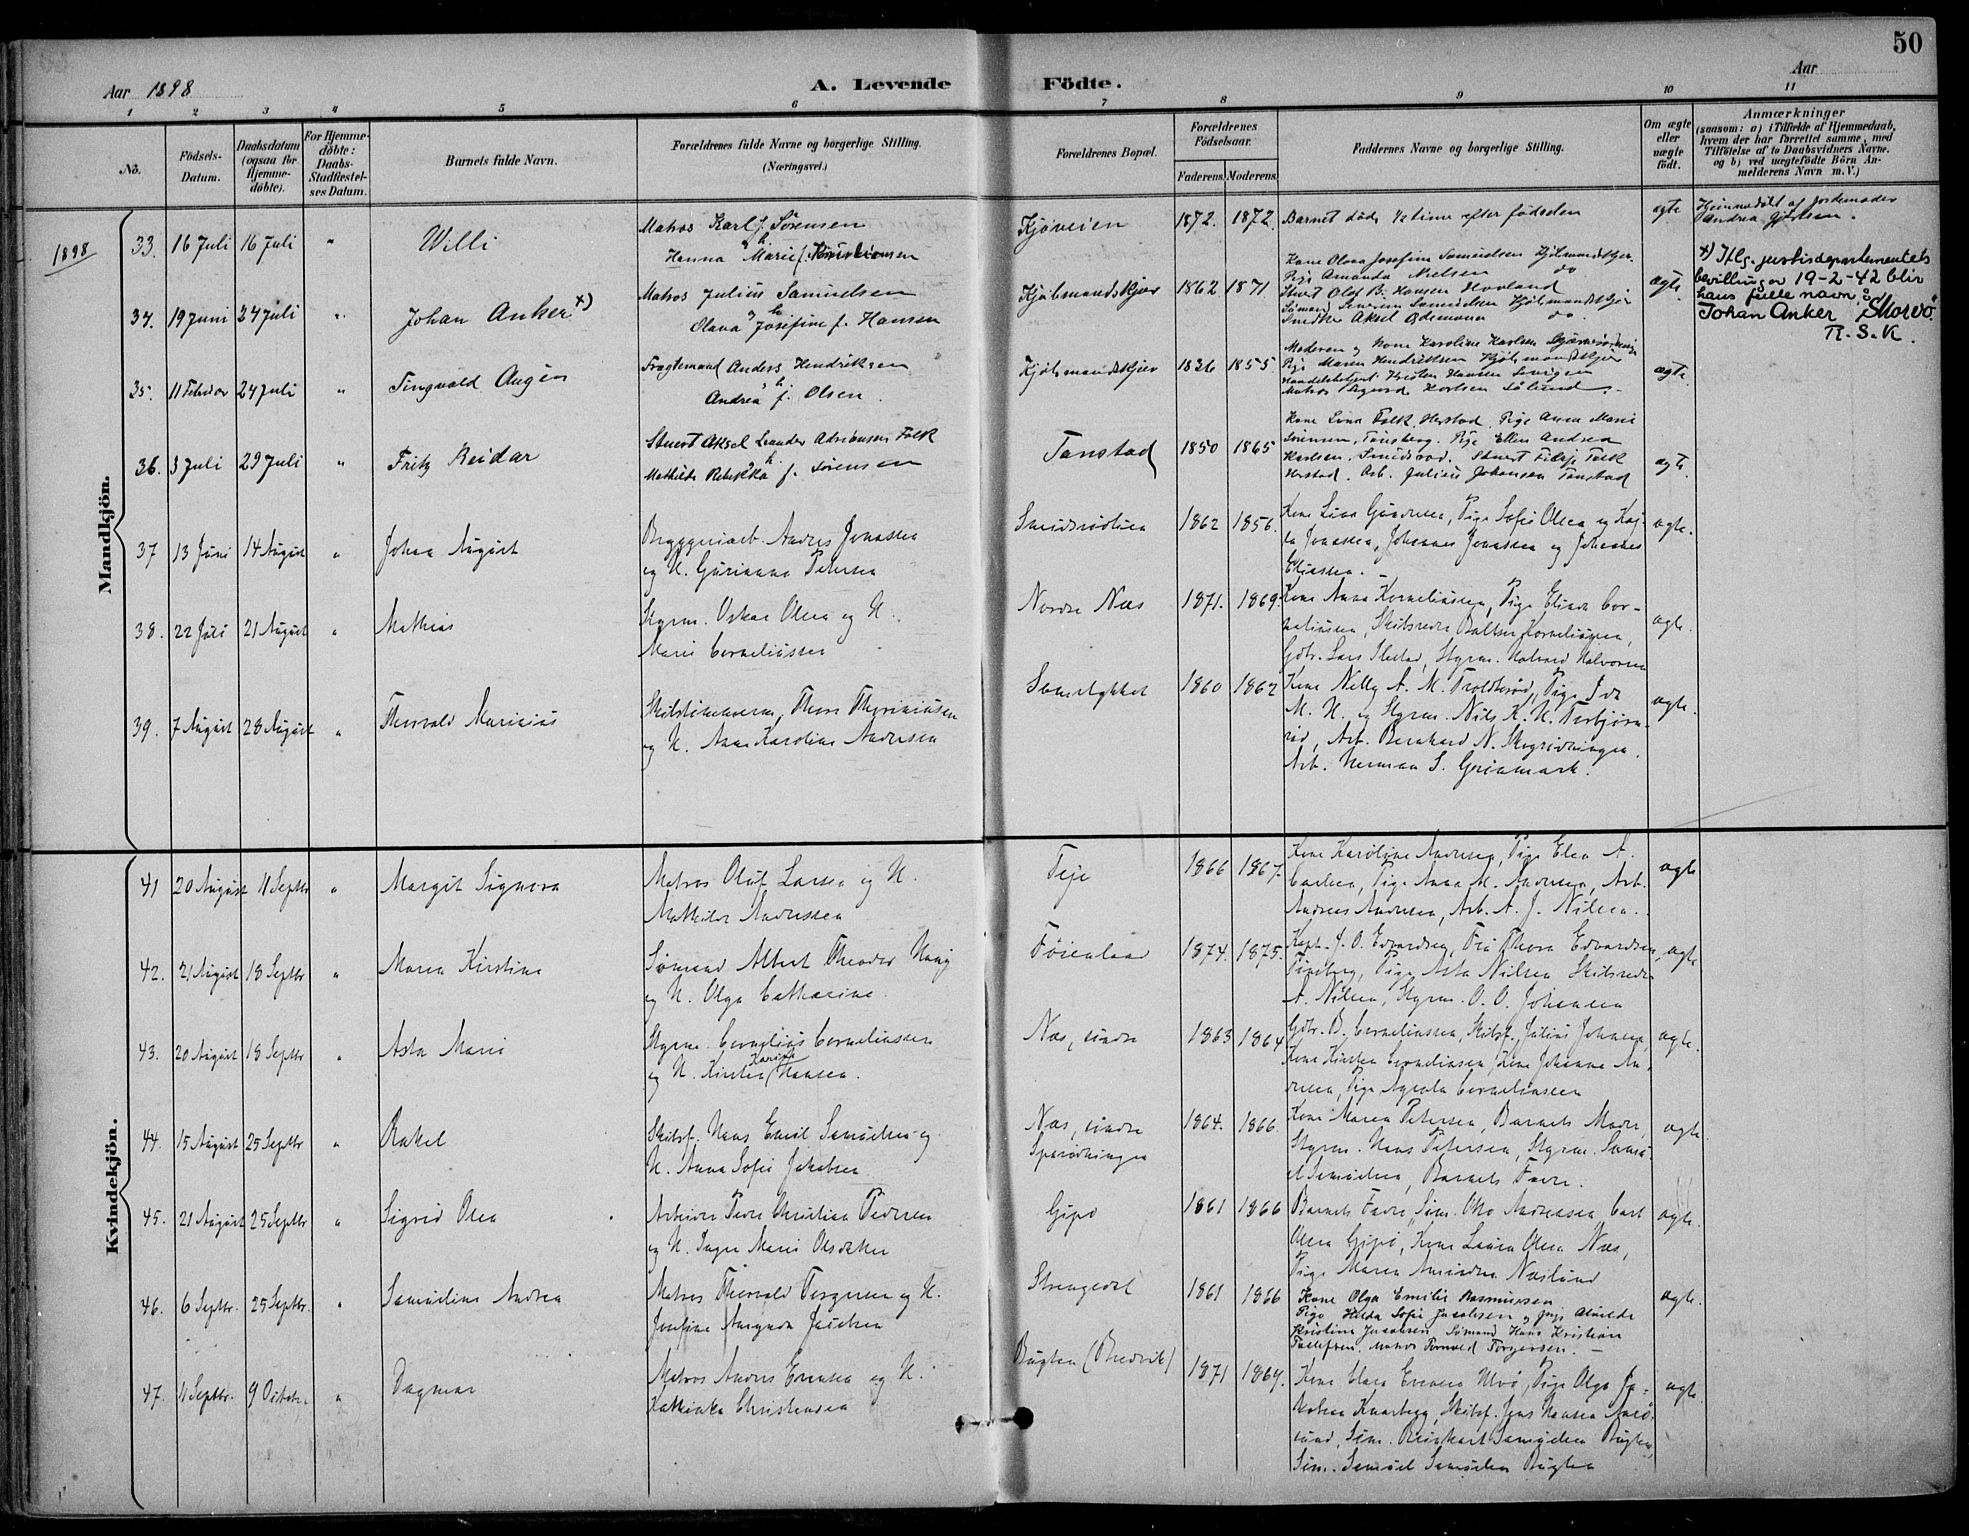 50
Aar 1898
A. Levende Födte.
Aar
1 2 3 4 5 6 7 8 9 10 11
No.
Födsels-Datum.
Daabsdatum (ogsaa for Hjemme-døbte).
For Hjemme-döbte: Daabs-Stadfæstel-ses Datum.
Barnets fulde Navn.
Forældrenes fulde Navne og borgerlige Stilling.
(Næringsvei.)
Forældrenes Bopæl.
Forældrenes Födselsaar.
Faderens. Moderens.
Faddernes Navne og borgerlige Stilling.
Om ægte eller uægte født.
Anmærkninger
(saasom: a) i Tilfælde af Hjemmedaab, hvem der har forrettet samme, med Tilföielse af to Daabsvidners Navne, og b) ved uægtefødte Börn An-melderens Navn m. V.)
Mandkjön.
1898
33. 16 Juli 16 Juli " Willi
Matros Karl J. Sörensen
Hanna Marie f. Kristiansen
Kjøveien 1872. 1872. Barnet døde ½ time efter fødselen
ægte Hjemmedøbt af Jordemoder
Andrea Gjertsen.
34. 19 Juni 24 Juli " Johan Anker x)
Matros Julius Samuelsen
og h Olava Josefine f. Hansen
Kjöbmandskjær 1862 1871
Kone Olava Josefine Samuelsen Kjöbmandskjær.
Pige Amanda Nielsen do
Stuert Olaf B. Hansen Hovland
Sömand Severin Samuelsen Kjöbmandskjær
Snedker Aksel Ödemann do.
ægte.
x) Iflg. justisdepartementets
bevilling av 19-2-42 blir
hans fulle navn:
Johan Anker Skorvö
R.S.K.
35. 11 Februar 24 Juli " Tingvald Augen
Fragtemand Anders Hendriksen
og h Andrea f. Olsen.
Kjöbmandskjær 1836 1855
Moderen og Kone Karoline Karlsen
Pige Maren Hendriksen Kjöbmandskjær
Kristen Hansen
Matros Sigurd Karlsen
ægte.
36. 3 Juli 29 Juli " Fritz Reidar
Stuert Aksel Leander Adriansen Falk
og h Mathilde Rebekka f. Sørensen
Tanstad 1850 1865
Kone Lina Falk Herstad. Pige Anna Marie
Sørensen, Tønsberg. Pige Ellen Andrea
Karlsen, Smidsrod. Stuert Filip Falk
Herstad. Arb. Julius Johansen Tanstad
ægte.
37 13 Juni 14 August " Johan August
Bryggeriarb. Andres Jonassen
og H. Gurianna Petersen
Smidsrødlien 1862 1856.
Kone Lina Gundersen, Pige Sofie Olsen og
Jonassen, Johannes Jonassen og Johannes
Eliassen.
ægte.
38. 22 Juli 21 August " Mathias
Styrm. Oskar Olsen og H.
Marie Corneliussen
Nordre Næs 1871. 1869.
Kone Anna Korneliussen, Pige Elise Cor-
neliussen, Skibsreder Baltser Korneliussen,
Gdbr. Lars Ilestad, Styrm. Halvard Halvorsen
ægte.
39. 7 August 28 August " Thorvald Marinius
Skibstømmerm. Thore Thoriniussen
og H. Anne Karoline Andersen
1860 1862
Kone Nilly A. M. Troldsrød, Pige Ida
M. H. og Styrm. Nils K. H. Torbjørn-
rød, Arb. Bernhard N.
Arb. Herman S. Grinmark.
ægte.
Kvindekjön.
41 20 August 11 Septbr " Margit Signora
Matros Oluf Larsen og H.
Mathilde Andreassen
Teje 1866 1867.
Kone Karoline Andersen, Pige Elen A.
Carlsen, Pige Anna M. Andersen, Arb.
Andreas Andersen, Arb. A. J. Nilsen.
ægte
42. 21 August 18 Septbr " Maren Kirstine
Sømand Albert Theodor Haug
og H. Olga Catharine.
Føienland 1874. 1875.
Kapt. J. O. Edvardsen, Fru Thora Edvardsen,
Tønsberg, Pige Asta Nilsen Skibsreder
A. Nilsen, Styrm. O. O. Johansen
ægte
43. 20 August 18 Septbr " Asta Marie
Styrm. Cornelius Corneliussen
og H. Kirsten Karine Hansen.
Næs, søndre 1863 1864
Gdbr. B. Corneliussen, Skibsf. Julius Johansen,
Kone Kirsten Corneliussen, Kone Johanne An-
dersen, Pige Agata Corneliussen
ægte.
44. 15 August 25 Septbr " Rakel
Skibsf. Hans Emil Samuelsen og
H. Anna Sofie Jakobsen
Næs, søndre
1864. 1866.
Kone Maren Petersen, Barnets Moder,
Styrm. Hans Petersen, Styrm. Samu-
el Samuelsen, Barnets Fader.
ægte.
45. 21 August 25 Septbr " Sigrid Olea
Arbeider Peder Christian Pedersen
og H. Inger Marie Olsdatter
Gipø 1861 1866
Barnets Fader, Søm. Otto Andreassen, Carl
Olsen Gipø, Kone Laura Olsen Næs,
Pige Maren Amundsen Næslund
ægte.
46. 6 Septbr. 25 Septbr. " Samueline Andrea
Matros Thorvald Torgersen og H.
Josefine Amanda Jacobsen
Strengedal 1861 1866
Kone Olga Emilie Rasmussen
Pige Hilda Sofie Jacobsen og Pige Alvilde
Kristine Jacobsen Sømand Hans Kristian
Tollefsen. Matros Torvald Torgersen.
ægte.
47. 11 Septbr. 9 October " Dagmar
Matros Anders Evensen og H.
Kathinka Christensen
Bugten (Bredvik) 1871 1869.
Kone Clara Evensen Ulvø, Pige Olga Ja-
kobsen Knarberg, Skibsf. Jens Hansen Årø-
sund, Søm. Reinhart Samuelsen Bugten,
Søm. Samuel Samuelsen Bugten
ægte